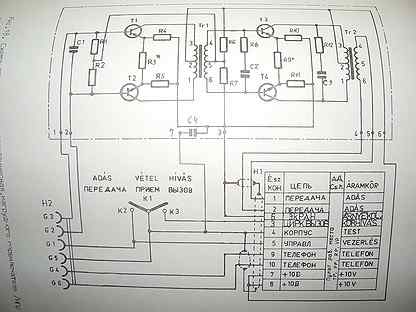 T1
Tr1
T3
Tr2
C1
R1
R4
R2
R3*
T2
R5
R6
R8
R7
C2
R10
R9*
R11
T4
R12
C3
1
2
C4
7
8
3
4
5
6
ADÁS VÉTEL HÍVÁS
ПЕРЕДАЧА ПРИЕМ ВЫЗОВ
K1
K2
K3
H2
H1
É.sz КОН. ЦЕПЬ ÁRAMKÖR
1 ПЕРЕДАЧА ADÁS
2 ПЕРЕДАЧА ADÁS
6 ЭКРАН ÁRNYÉKOL
3 ЦИРК.ВЫЗОВ KÖRHÍVÁS
4 КОРПУС TEST
5 УПРАВЛ VEZÉRLÉS
9 ТЕЛЕФОН TELEFON
10 ТЕЛЕФОН TELEFON
7 +10В +10V
8 +10В +10V
G3
G2
G1
G5
G4
G6